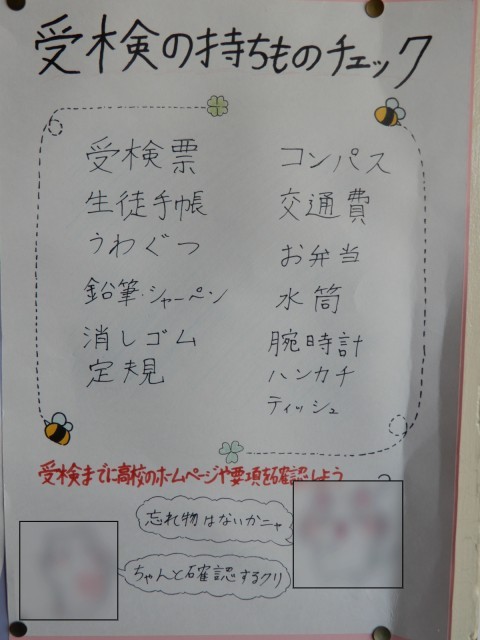 受検の持ちものチェック
受検票
生徒手帳
うわぐつ
鉛筆・シャーペン
消しゴム
定規
コンパス
交通費
お弁当
水筒
腕時計
ハンカチ
ティッシュ
受検までに高校のホームページや要項を確認しよう
忘れ物はないかニャ
ちゃんと確認するクリ